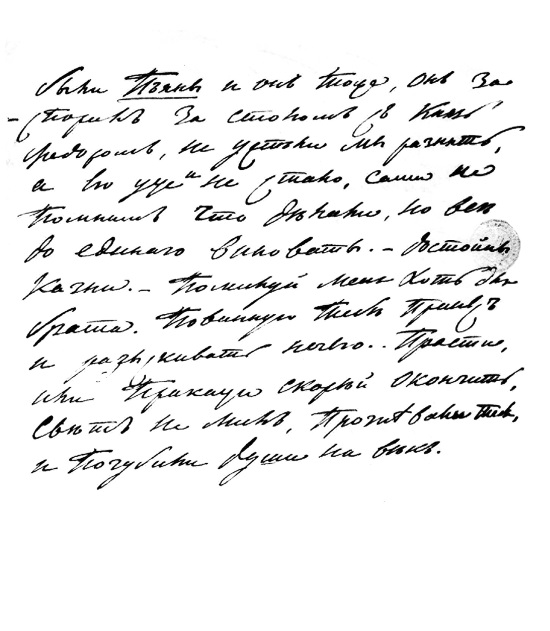 были Пьяны и онъ тоже, онъ за-
спорилъ за столомъ съ Князь
Федоромъ, не успели мы разнять,
а его ужъ не стало, сами не
Помнимъ что дѣлали, но все
до единаго виноваты. – достойны
Казни. – Помилуй меня хоть для
брата. Повинную тебѣ Принесъ
и разыскивать нечего. – Прости,
или Прикажи скорѣй окончить,
Свѣтъ не милъ, Прогнѣвали тебя,
и Погубили души на вѣкъ.